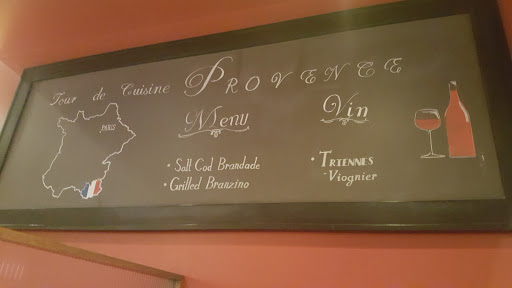 Tour de Cuisine PROVENCE
PARIS
Menu
• Salt Cod Brandade
• Grilled Branzino
Vin
• TRIENNES
-Viognier